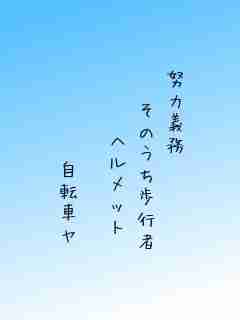 努力義務
そのうち歩行者
ヘルメット
自転車ヤ